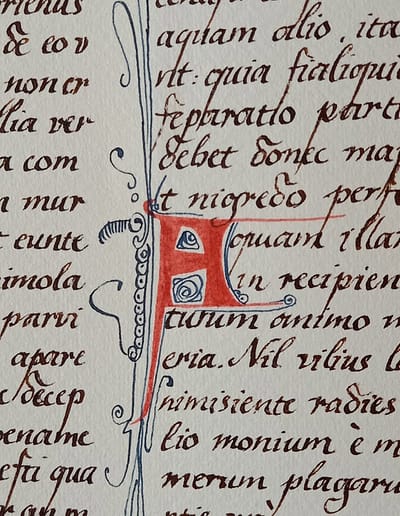 rienus
de eo v
non er
lia ver
a com
n mur
t eunte
imola
parvi
apare
e decep
ename
efti qua
aquam olio, ita
rit: quia si aliqui
separatio parti
debet donec ma
t nigredo perf
Aquam illa
in recipien
turum animo
eria. Nil vilius
nimisiente radies
lio monium è m
merum plagaru